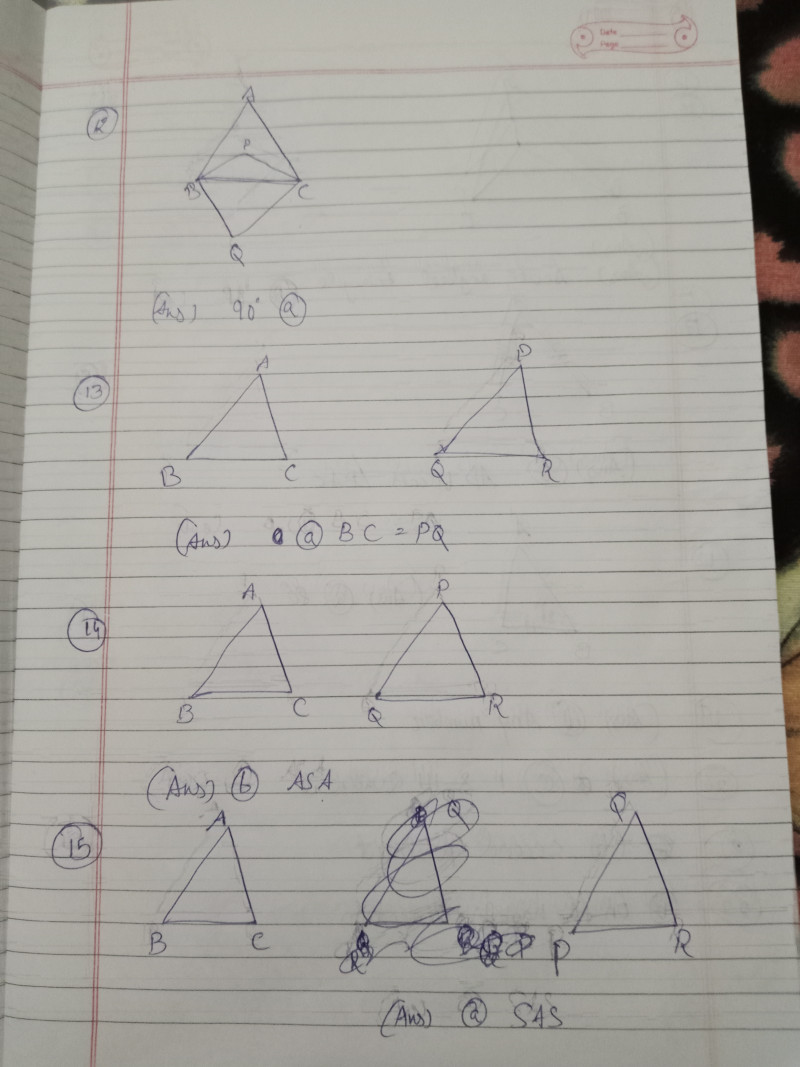 Date
Page
12
A
P
B C
Q
(Ans) 90° (a)
13
A P
B C Q R
(Ans) (a) BC = PQ
14
A P
B C Q R
(Ans) (b) ASA
15
A Q Q
B C P R
(Ans) (a) SAS